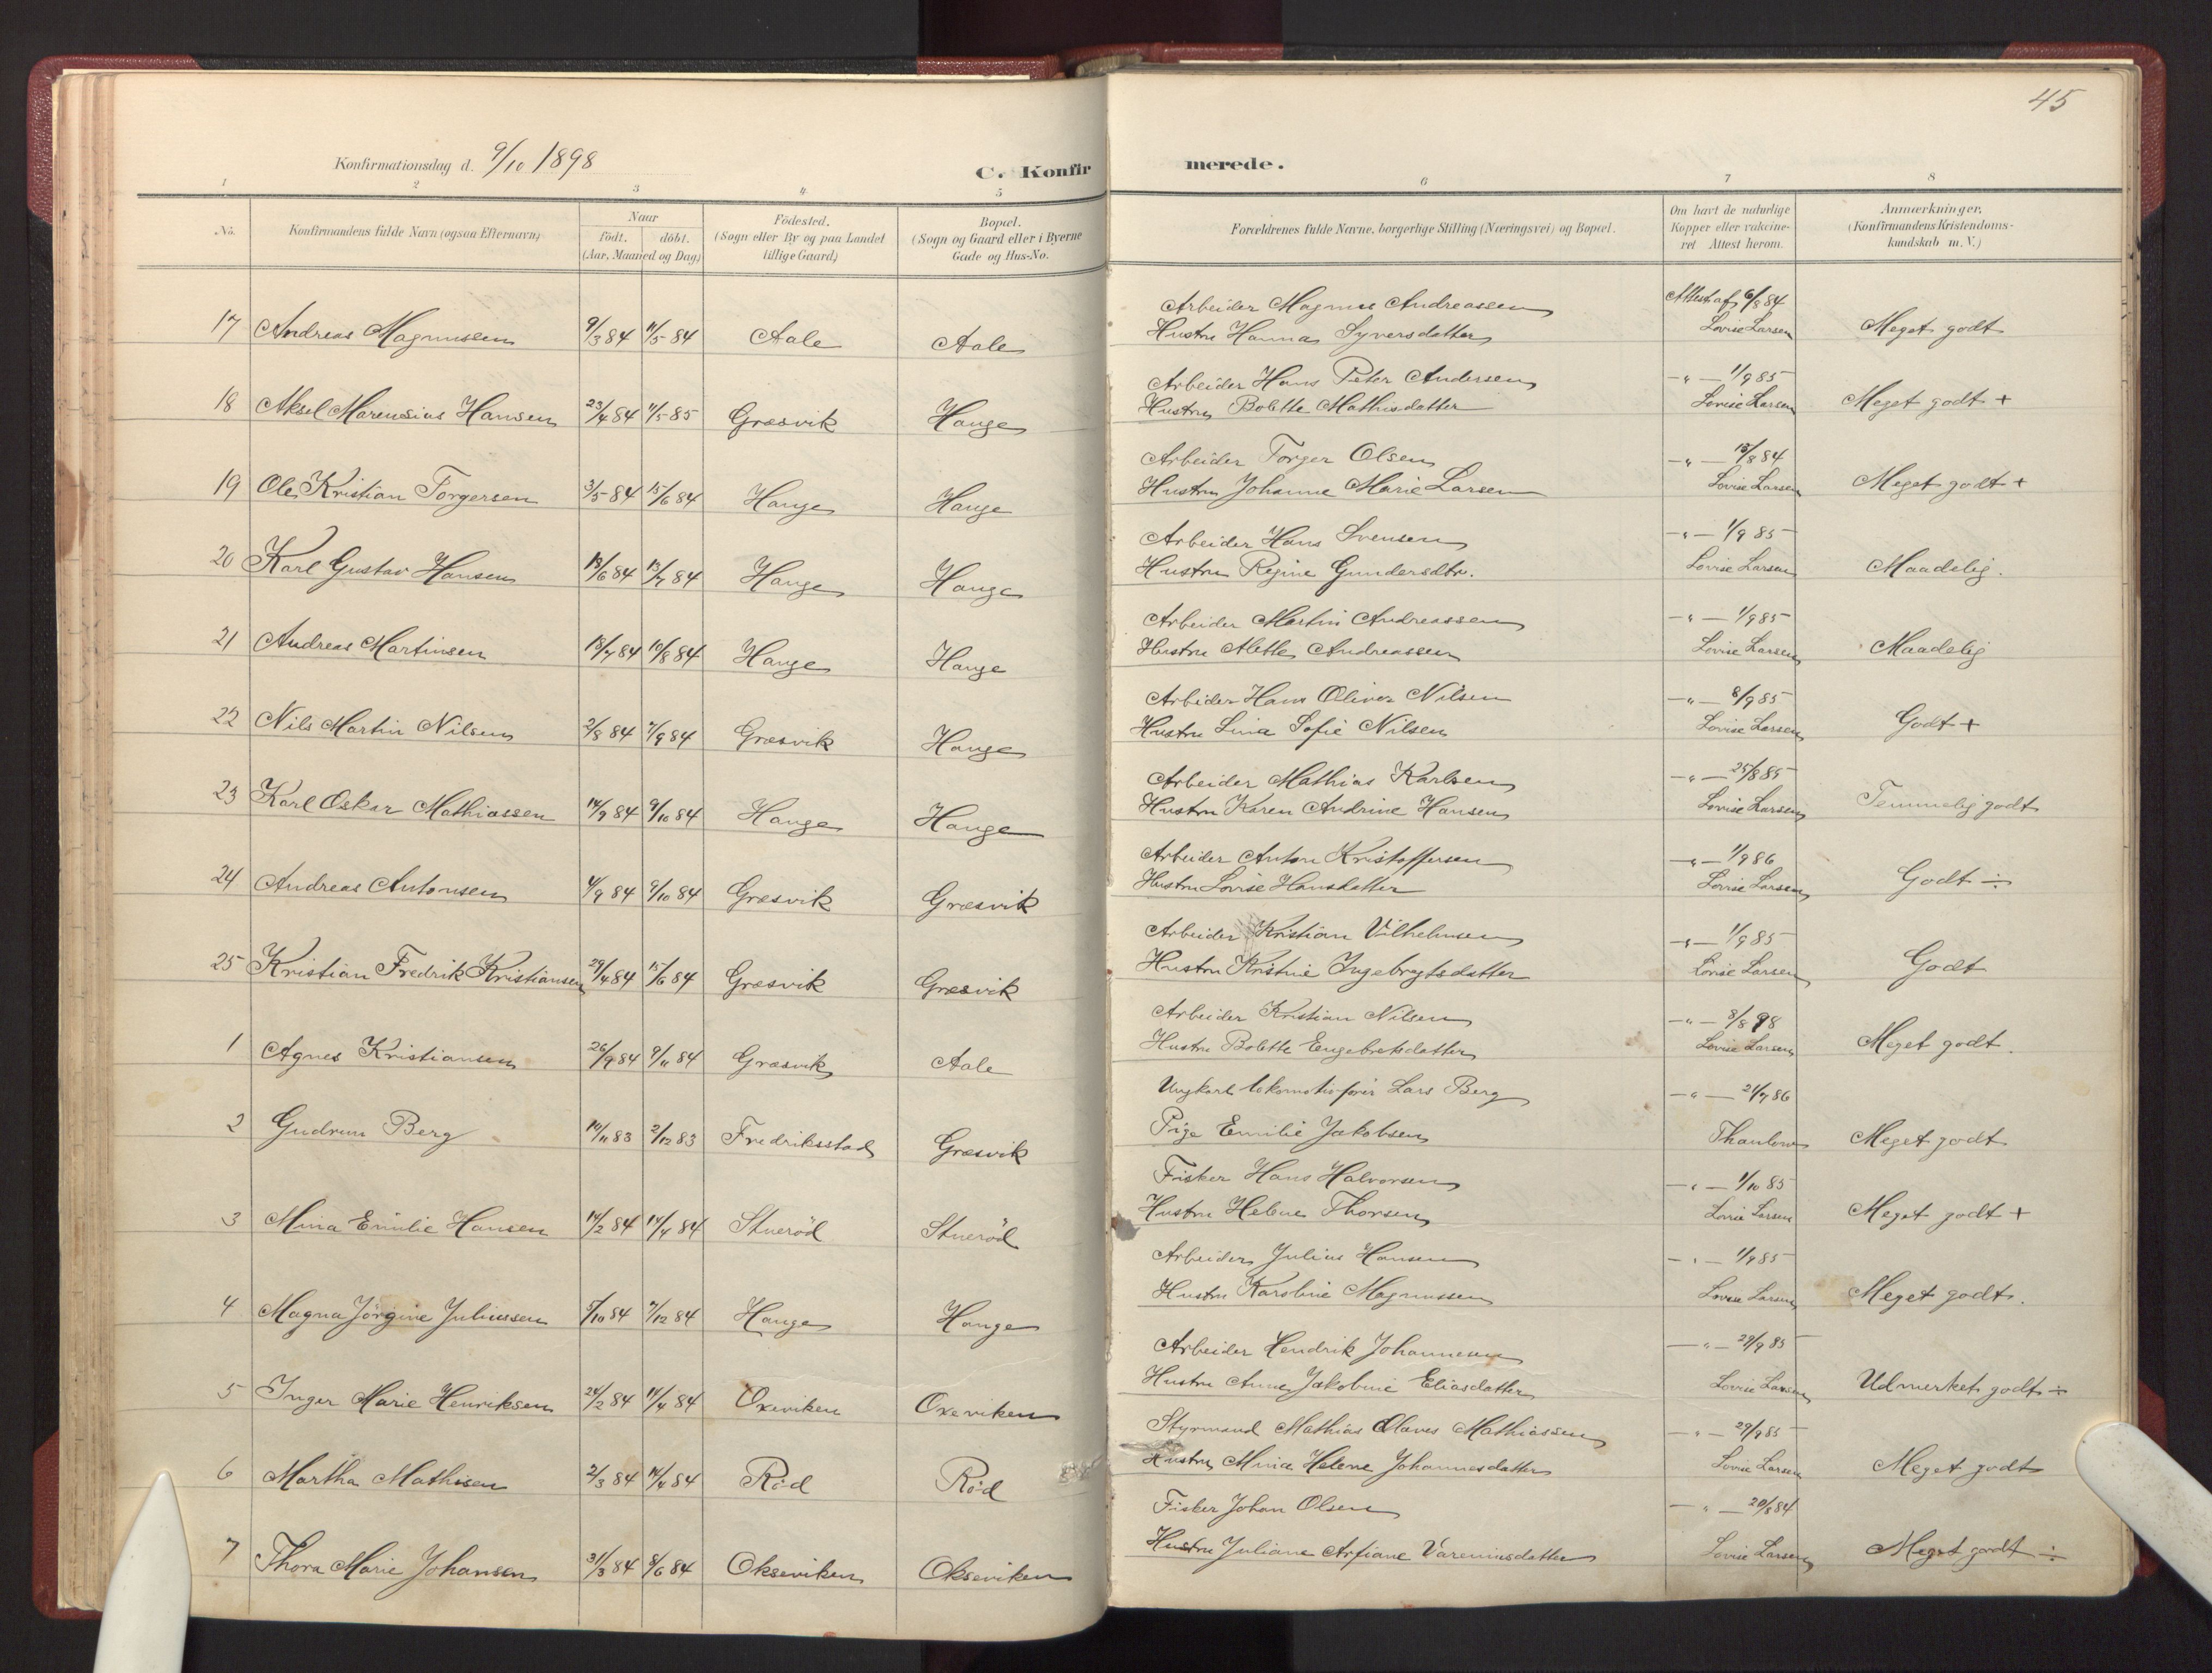 45
Konfirmationsdag d. 9/10 1898
C. Konfirmerede.
1 2 3 4 5 6 7 8
No. Konfirmandens fulde Navn (ogsaa Efternavn) Naar født. døbt. (Aar, Maaned og Dag) Födested. (Sogn eller By og paa Landet tillige Gaard) Bopæl. (Sogn og Gaard eller i Byerne Gade og Hus-No. Forældrenes fulde Navne, borgerlige Stilling (Næringsvei) og Bopæl. Om havt de naturlige Kopper eller vakcineret Attest herom. Anmærkninger. (Konfirmandens Kristendomskundskab m. V.)
17 Andreas Magnussen 9/3 84 11/5 84 Aale Aale Arbeider Magnus Andreassen Attest af 6/8 84
Hustru Hanna Syversdatter Lovise Larsen Meget godt
18 Aksel Marensius Hansen 23/4 84 11/5 85 Græsvik Hauge Arbeider Hans Peter Andersen -"- 1/9 85
Hustru Bolette Mathisdatter Lovise Larsen Meget godt +
19 Ole Kristian Torgersen 3/5 84 15/6 84 Hauge Hauge Arbeider Torger Olsen -"- 15/8 84
Hustru Johanne Marie Larsen Lovise Larsen Meget godt +
20 Karl Gustav Hansen 18/6 84 13/7 84 Hauge Hauge Arbeider Hans Svensen -"- 1/9 85
Hustru Regine Gundersdtr. Lovise Larsen Maadelig.
21 Andreas Martinsen 18/7 84 10/8 84 Hauge Hauge Arbeider Martin Andreassen -"- 1/9 85
Hustru Alette Andreassen Lovise Larsen Maadelig
22 Nils Martin Nilsen 2/8 84 7/9 84 Græsvik Hauge Arbeider Hans Oliver Nilsen -"- 8/9 85
Hustru Lina Sofie Nilsen Lovise Larsen Godt +
23 Karl Oskar Mathiassen 14/9 84 9/10 84 Hauge Hauge Arbeider Mathias Karlsen -"- 25/8 85
Hustru Karen Andrine Hansen Lovise Larsen Temmelig godt
24 Andreas Antonsen 4/9 84 9/10 84 Græsvik Græsvik Arbeider Anton Kristoffersen -"- 1/9 86
Hustru Lovise Hansdatter Lovise Larsen Godt ÷
25 Kristian Fredrik Kristiansen 29/4 84 15/6 84 Græsvik Græsvik Arbeider Kristian Vilhelmsen -"- 1/9 85
Hustru Kristine Ingebregtsdatter Lovise Larsen Godt
1 Agnes Kristiansen 26/9 84 9/11 84 Græsvik Aale Arbeider Kristian Nilsen -"- 8/8 98
Hustru Bolette Engebretsdatter Lovise Larsen Meget godt.
2 Gudrun Berg 14/11 83 2/12 83 Fredriksstad Græsvik Ungkarl lokomotivförer Lars Berg -"- 21/7 86
Pige Emilie Jakobsen Thaulow Meget godt
3 Mina Emilie Hansen 14/2 84 14/4 84 Stueröd Stueröd Fisker Hans Halvorsen -"- 1/10 85
Hustru Helene Thorsen Lovise Larsen Meget godt +
4 Magna Jörgine Juliussen 5/10 84 7/12 84 Hauge Hauge Arbeider Julius Hansen -"- 1/9 85
Hustru Karoline Magnussen Lovise Larsen Meget godt.
5 Inger Marie Henriksen 24/2 84 14/4 84 Oxeviken Oxeviken Arbeider Hendrik Johannesen -"- 29/9 85
Hustru Anne Jakobine Eliasdatter Lovise Larsen Udmerket godt ÷
6 Martha Mathisen 2/3 84 14/4 84 Röd Röd Styrmand Mathias Olaves Mathiassen -"- 29/9 85
Hustru Mina Helene Johannesdatter Lovise Larsen Meget godt
7 Thora Marie Johansen 31/3 84 8/6 84 Okseviken Okseviken Fisker Johan Olsen -"- 20/8 84
Hustru Juliane Arfiane Vareniusdatter Lovise Larsen Meget godt ÷